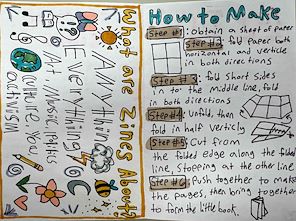 What are Zines About?
Anything
Everything
Art / Music / Politics
Culture / You
Activism
How to Make
Step #1: obtain a sheet of paper
Step #2: fold paper both
horizontal and verticle
in both directions
Step #3: fold short sides
in to the middle line, fold
in both directions
Step #4: Unfold, then
fold in half verticly
Step #5: Cut from
the folded edge along the folded
line, stopping at the other line
Step #6: Push together to make
the pages, then bring together
to form the little book.